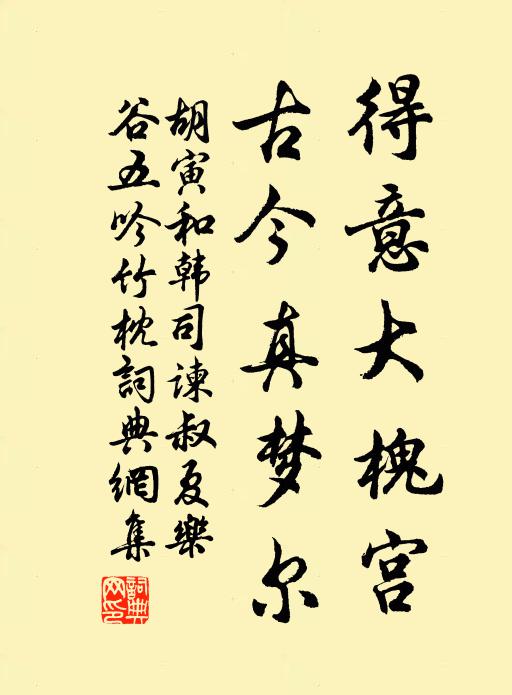 得意大槐宫
古今真梦尔
胡寅和韩司谏叔夏樂
谷五吟竹枕詞典網集
詞典网印